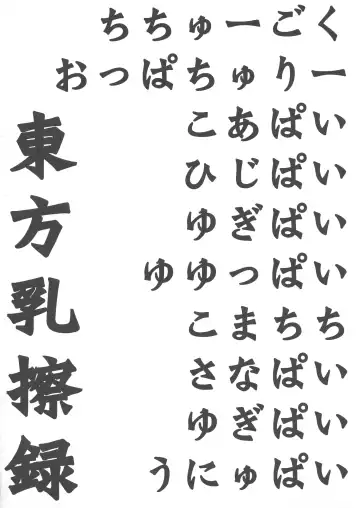 ちちゅーごく
おっぱちゅりー
こあぱい
ひじぱい
ゆぎぱい
ゆゆっぱい
こまちち
さなぱい
ゆぎぱい
うにゅぱい
東方乳擦録